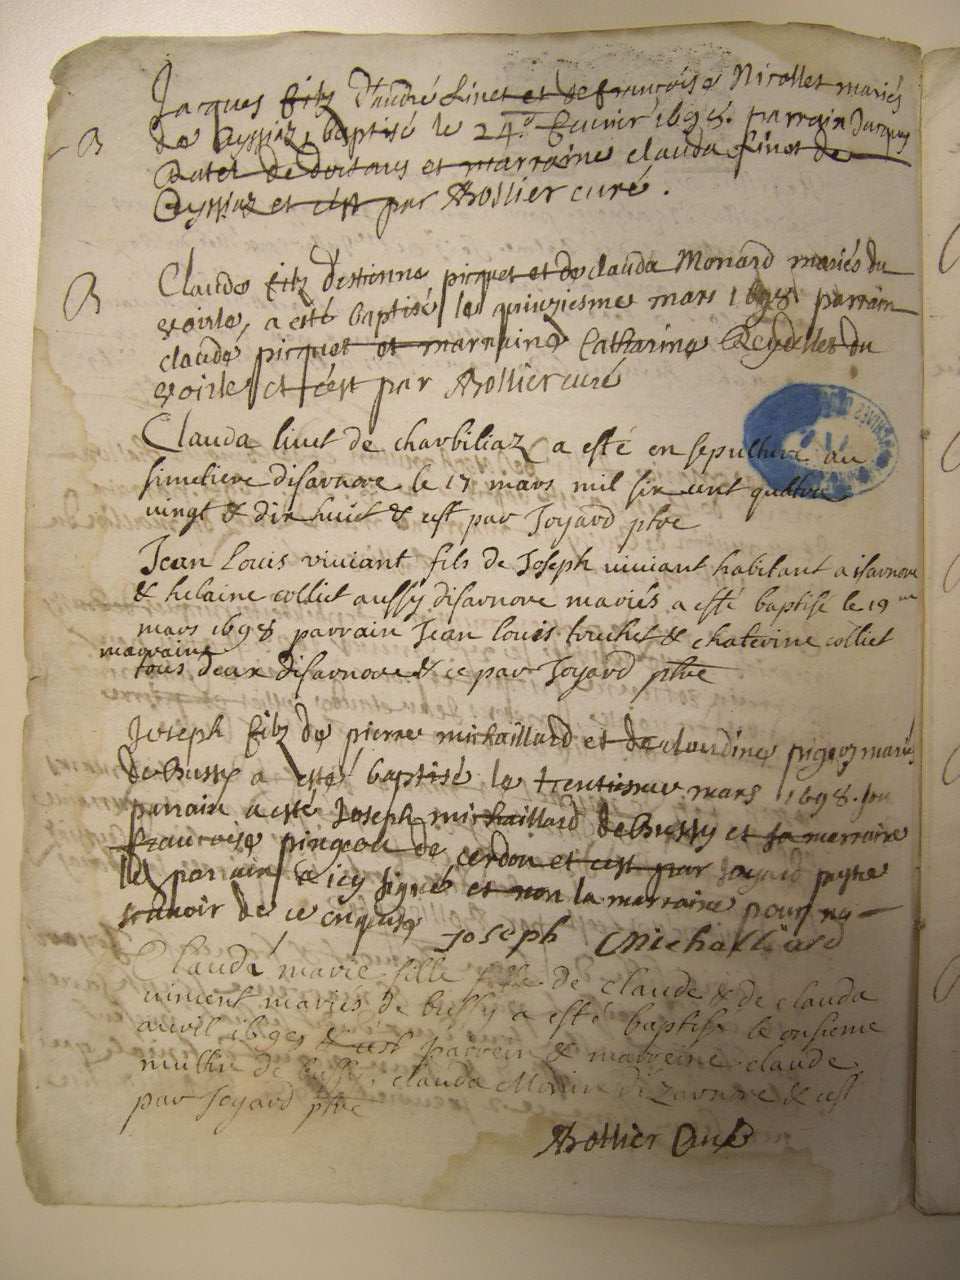 Jacques filz d'andré Livet et de françoise Nicollet mariés
B de Ceyssiaz, baptisé le 24e. feuvrié 1698. parrain Jacques
Ratel de dortans et marraine clauda Livet de
Ceyssiaz et c'est par ABollier curé.
Claude filz d'estienne picquet et de clauda Monard mariés du
B voirle, a esté baptisé le quinziesme mars 1698 parrain
claude picquet et marraine Catharine Reydellet du
voirle et c'est par ABollier curé
Clauda livet de charbiliaz a esté en sepulture au
simetiere disarnore le 17 mars mil six cent quattre
vingt & dix huict & est par Joyard ptre
Jean Louis viviant fils de Joseph viviant habitant a isarnore
& helaine colliet aussy disarnore mariés a esté baptise le 19me
mars 1698 parrain Jean louis touchet & chaterine colliet
marraine
tous deux disarnore & ce par Joyard ptre
Joseph filz de pierre michaillard et de claudine pigeoz mariés
de Bussy a esté baptisé le trentiesme mars 1698. son
parrain a esté Joseph michaillard de Bussy et sa marraine
françoise pingeon de cerdon et c'est par Joyard prestre
le parrain a icy signé et non la marraine pour ne
scavoir de ce enquise Joseph Michallïard
Clauda marie fille de claude & de clauda
vincent mariés de bussy a esté baptise le onsieme
auvil 1698 parrein & marreine claude
de bussy, clauda dizarnore & est
par Joyard ptre
ABollier Curé